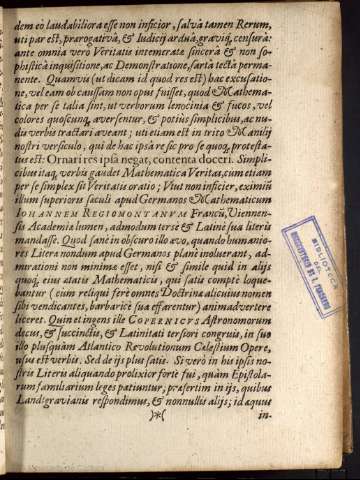 dem eò laudabiliora esse non inficior, salvâ tamen Rerum,
uti par est, prærogativâ, & Iudicij arduâ, gravíq́; censurâ:
ante omnia verò Veritatis intemeratæ sincerâ & non so-
phisticâ inquisitione, ac Demonstratione, sartâ tectâ perma-
nente. Quamvis (ut dicam id quod res est) hac excusatio-
ne, vel eam ob caussam non opus fuisset, quod Mathema-
tica per se talia sint, ut verborum lenocinia & fucos, vel
colores quoscunq́; aversentur, & potiùs simplicibus, ac nu-
dis verbis tractari aveant; uti etiam est in trito Manilij
nostri versiculo, qui de hac ipsa re sic pro se quoq́; protesta-
tus est: Ornari res ipsa negat, contenta doceri. Simpli-
cibus itaq́; verbis gaudet Mathematica Veritas, cum etiam
per se simplex sit Veritatis oratio; Ut ut non inficier, eximiũ
illum superioris sæculi apud Germanos Mathematicum
IOHANNEM REGIOMONTANVM Francũ, Viennen-
sis Academiæ lumen, admodum tersè & Latinè sua literis
mandasse. Quod sanè in obscuro illo ævo, quando humanio-
res Literæ nondum apud Germanos planè inoluerant, ad-
mirationi non minimæ esset, nisi & simile quid in alijs
quoq́; eius ætatis Mathematicis, qui satis comptè loque-
bantur (cùm reliqui ferè omnes Doctrinæ alicuius nomen
sibi vendicantes, barbariè sua efferarent) animadvertere
liceret. Quin et ingens ille COPERNICVS Astronomorum
decus, & succinctis, & Latinitati tersiori congruis, in suo
illo plusquàm Atlantico Revolutionum Cœlestium Opere,
usus est verbis. Sed de ijs plus satis. Si verò in his ipsis no-
stris Literis aliquando prolixior fortè fui, quàm Epistola-
rum familiarium leges patiuntur, præsertim in ijs, quibus
Landtgravianis respondimus, & nonnullis alijs; id æquus
in-
BIBLIOTECA
DE